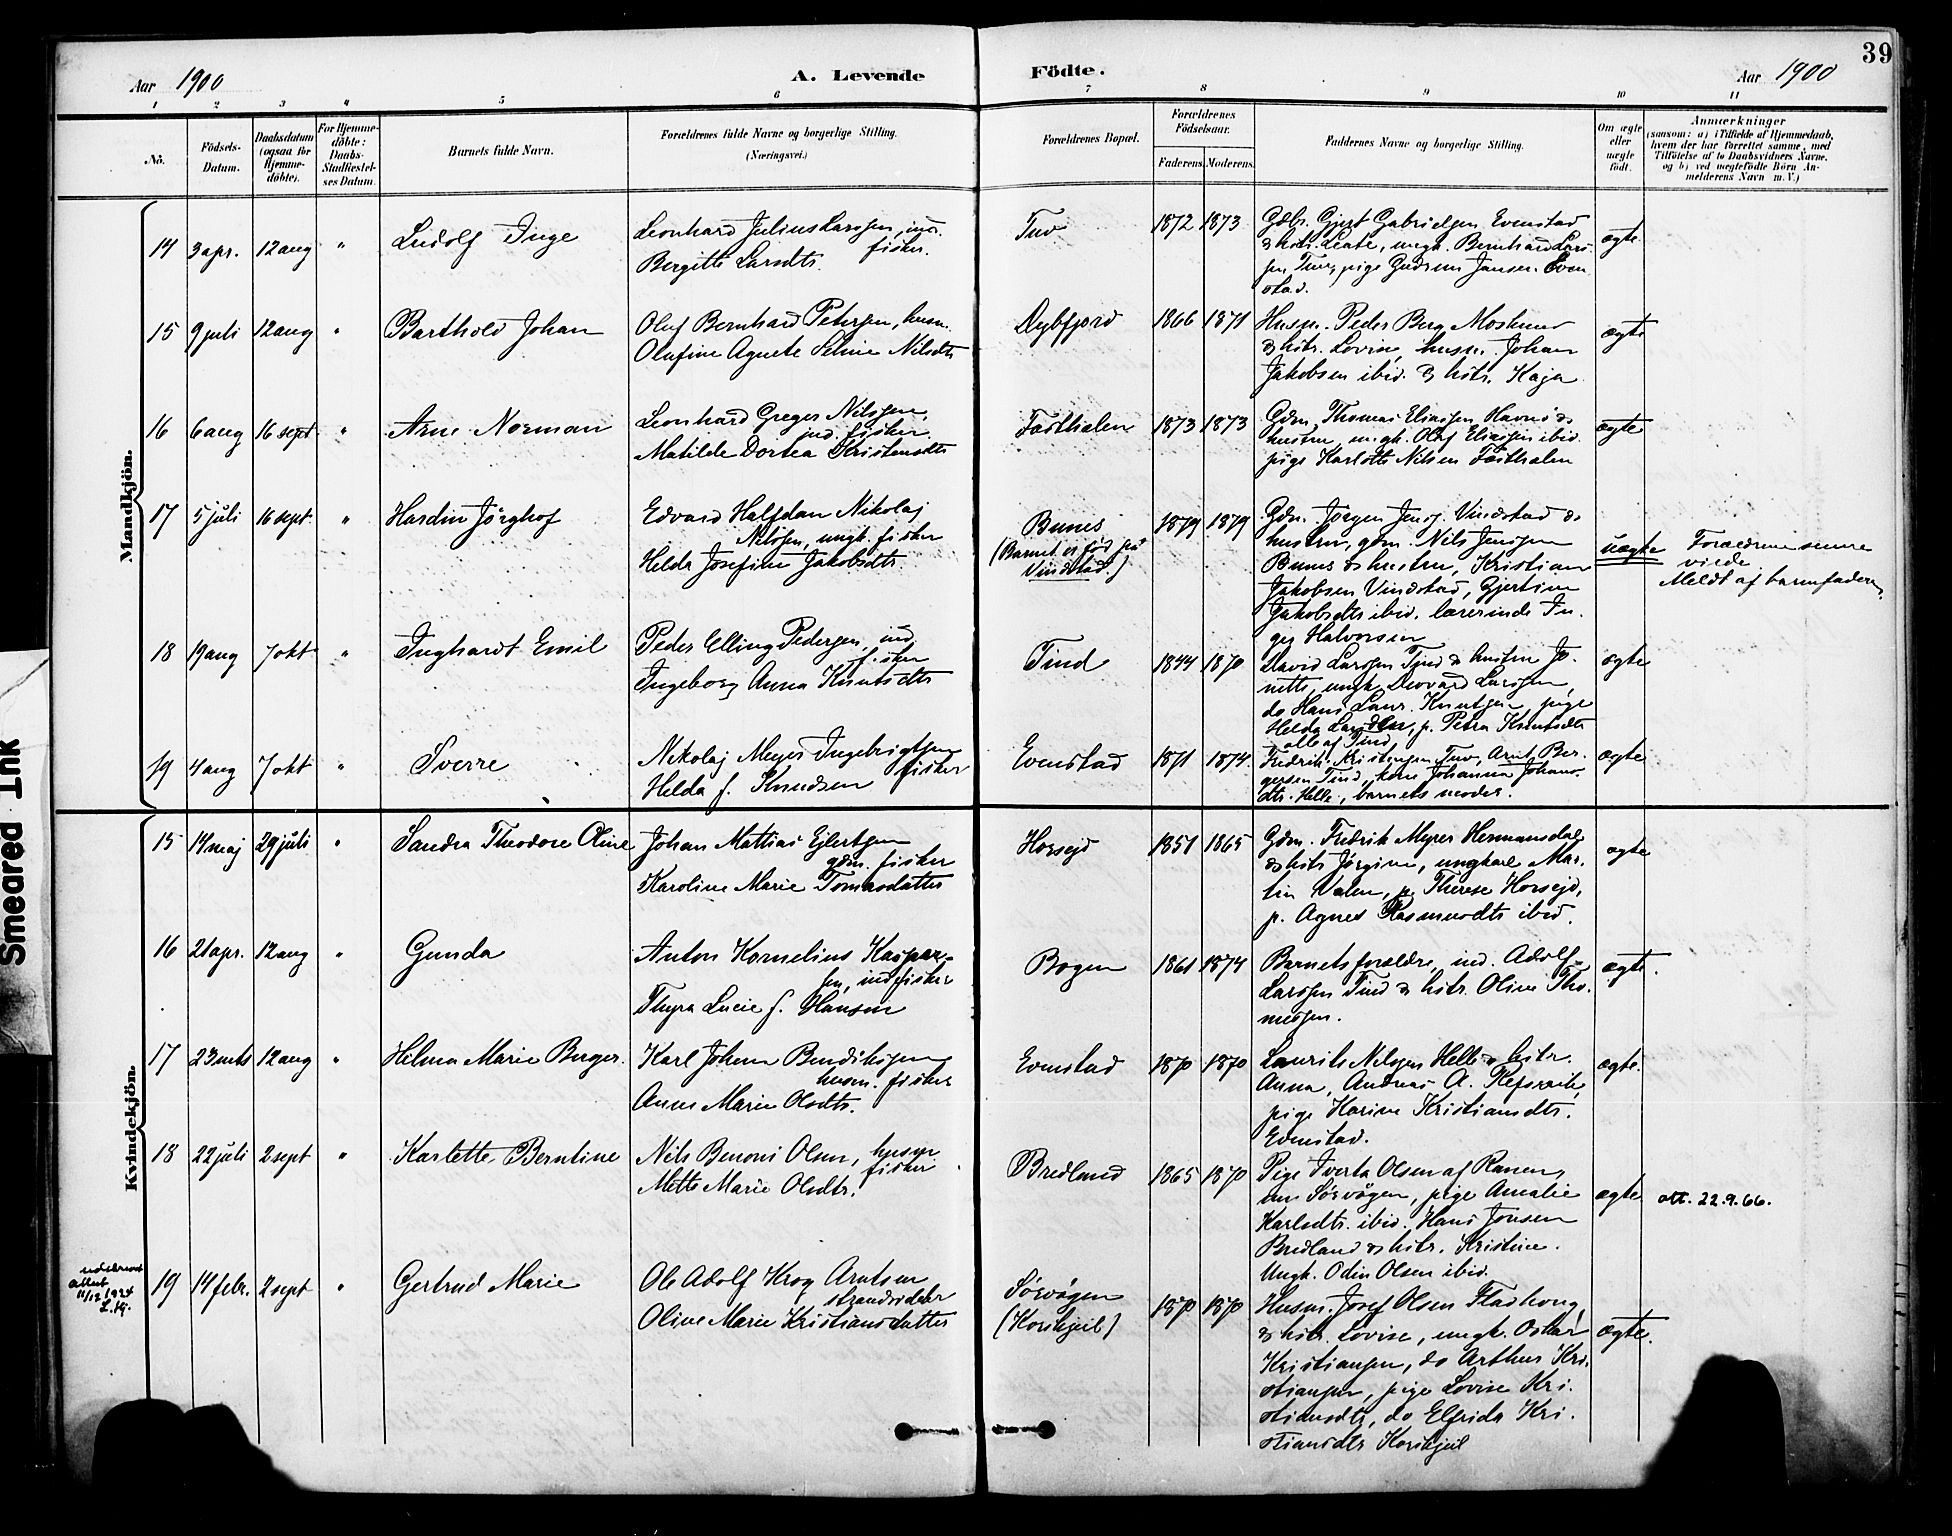 39
Aar 1900
A. Levende
Födte.
Aar 1900
1 2 3 4 5 6 7 8 9 10 11
No.
Födsels-
Datum.
Daabsdatum
(ogsaa for
Hjemme-
döbte).
For Hjemme-
döbte:
Daabs-
Stadfæstel-
ses Datum.
Barnets fulde Navn.
Forældrenes fulde Navne og borgerlige Stilling.
(Næringsvei.)
Forældrenes Bopæl.
Forældrenes
Födselsaar.
Faderens Moderens.
Faddernes Navne og borgerlige Stilling.
Om ægte
eller
uægte
födt.
Anmærkninger
(saasom: a) i Tilfælde af Hjemmedaab,
hvem der har forrettet samme, med
Tilföielse af to Daabsvidners Navne,
og b) ved uægtefödte Börn An-
melderens Navn m. V.)
Mandkjön.
14 3 apr. 12 aug " Ludolf Inge
Leonhard Julius Larssen, ind.
fisker.
Bergitte Larsdtr.
Tuv
1872 1873
Gdbr. Gjert Gabrielsen, Evenstad
& hstr. Leate, ungk. Bernhard Lars-
sen Tuv, pige Gudrun Jansen Even
stad.
ægte
15 9 juli 12 aug " Barthold Johan
Oluf Bernhard Petersen, husm.
Olufine Agnete Seline Nilsdtr
Dybfjord
1866 1871
Husm. Peder Berg Moskenes
& hstr. Lovise, husm. Johan
Jakobsen ibid. & hstr. Kaja
ægte
16 6 aug 16 sept. " Arne Norman
Leonhard Greger Nilssen,
ind. fisker
Matilde Dortea Kristensdtr
Fasthalen
1873 1873
Gdm. Thomas Eliassen Havnö &
hustru, ungk. Olaf Eliassen ibid.
pige Karlotte Nilsen Fasthalen
ægte
17 5 juli 16 sept. " Hardin Jørghof
Edvard Halfdan Nikolaj
Nilssen, ungk. fisker
Helda Josefine Jakobsdtr
Bunes
(Barnet er født på
Vindstad.)
1879 1879
Gdm. Jørgen Jenss. Vindstad &
hustru, gdm. Nils Jenssen
Bunes & hustru, Kristian
Jakobsen Vindstad, Gjertine
Jakobsdtr ibid. lærerinde In-
ger Halvorsen
uægte
Forældrene senere
viede
Meldt af barnefaderen.
18 19 aug 7 okt " Inghardt Emil
Peder Elling Pedersen, ind
fisker
Ingeborg Anna Knutsdtr
Tind
1844 1870
David Larssen Tind & hustru Jo-
nette, ungk. Edvard Larssen,
do Hans Laur. Knutsen, pige
Helda Larsdtr, p. Petra Knutsdtr
alle af Tind
ægte
19 4 aug 7 okt " Sverre
Nikolaj Meyer Ingebrigtsen
fisker
Helda f. Knudsen
Evenstad
1871 1874.
Fredrik Kristensen Tuv, Arnt Ber-
gersen Tind, kone Johanna Johans-
dtr. Helle, barnets moder.
ægte
Kvindekjön.
15 14 maj 29 juli " Sandra Theodore Oline
Johan Mattias Ejlertsen
gdm. fisker
Karoline Marie Tomasdatter
Horsejd
1851 1865
Gdm. Fredrik Meyer Hermansdal
& hstr Jørgine, ungkarl Mar-
tin Valen, p. Therese Horsejd,
p. Agnes Rasmusdtr ibid.
ægte
16 21 apr. 12 aug " Gunda
Anton Kornelius Kasper-
sen, ind. fisker
Thyra Lucie f. Hansen
Bogen
1861 1874
Barnets forældre, ind. Adolf
Larssen Tind & hstr. Oline Tho-
messen.
ægte.
17 23 mts 12 aug " Helma Marie Berger.
Karl Johan Bendiksen
husm. fisker
Anne Marie Olsdtr.
Evenstad
1870 1870
Laurits Nilssen Helle & hstr.
Anna, Andreas A. Refsvik,
pige Karine Kristiansdtr.
Evenstad.
ægte.
18 22 juli 2 sept " Karlette Berntine
Nils Benoni Olsen, husm
fisker
Mette Marie Olsdtr.
Bredland
1865 1870
Pige Iverta Olsen af Ranen,
nu Sørvågen, pige Amalie
Karlsdtr. ibid. Hans Jonsen
Bredland & hstr. Kristine.
Ungk. Odin Olsen ibid.
ægte
att. 22.9.66.
attest
11/12 1924
L.Kj.
19 14 febr. 2 sept " Gertrud Marie
Ole Adolf Krog Arntsen
strandsidder
Oline Marie Kristiansdatter
Sørvågen
(Korshjeil)
1870 1870
Husm. Josef Olsen Flashong
& hstr. Lovise, ungk. Oskar
Kristiansen, do Arthur Kri-
stiansen, pige Lovise Kri-
stiansdtr, do Elfrida Kri-
stiansdtr Korshjeil
ægte.
Smeared Ink